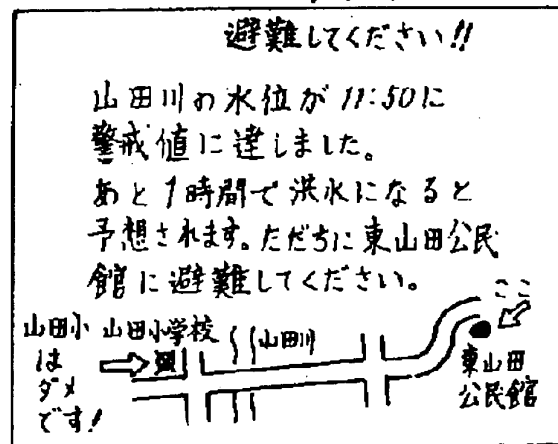 避難してください!!
山田川の水位が11:50に
警戒値に達しました。
あと1時間で洪水になると
予想されます。ただちに東山田公民
館に避難してください。
山田小
は
ダメ
です!
山田小学校
山田川
ここ
東山田
公民館